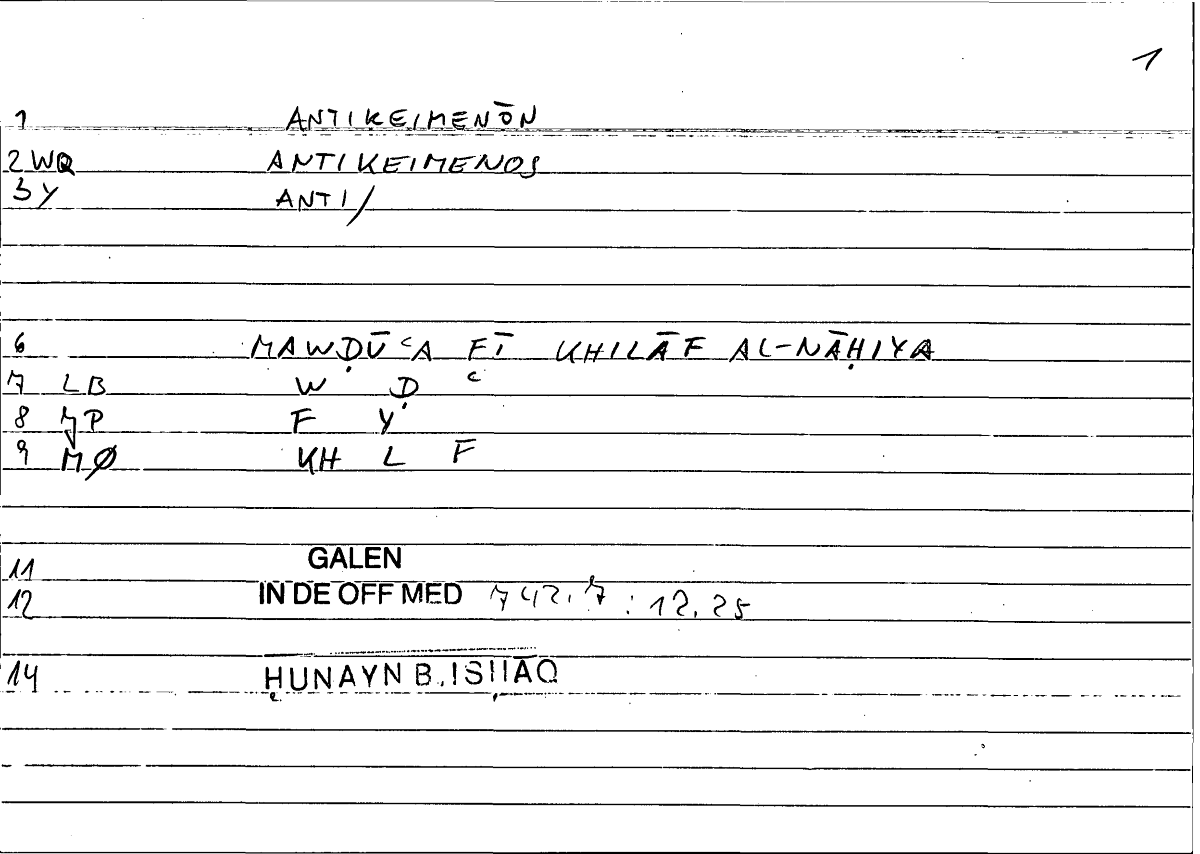 1
1 ANTIKEIMENŌN
2 WQ ANTIKEIMENOS
3 Y ANTI/
6 MAWḌŪʿA FĪ KHILĀF AL-NĀḤIYA
7 LB W Ḍ ʿ
8 JP F Y
9 MØ KH L F
11 GALEN
12 IN DE OFF MED 742.7 : 12.25
14 ḤUNAYN B. ISḤĀQ